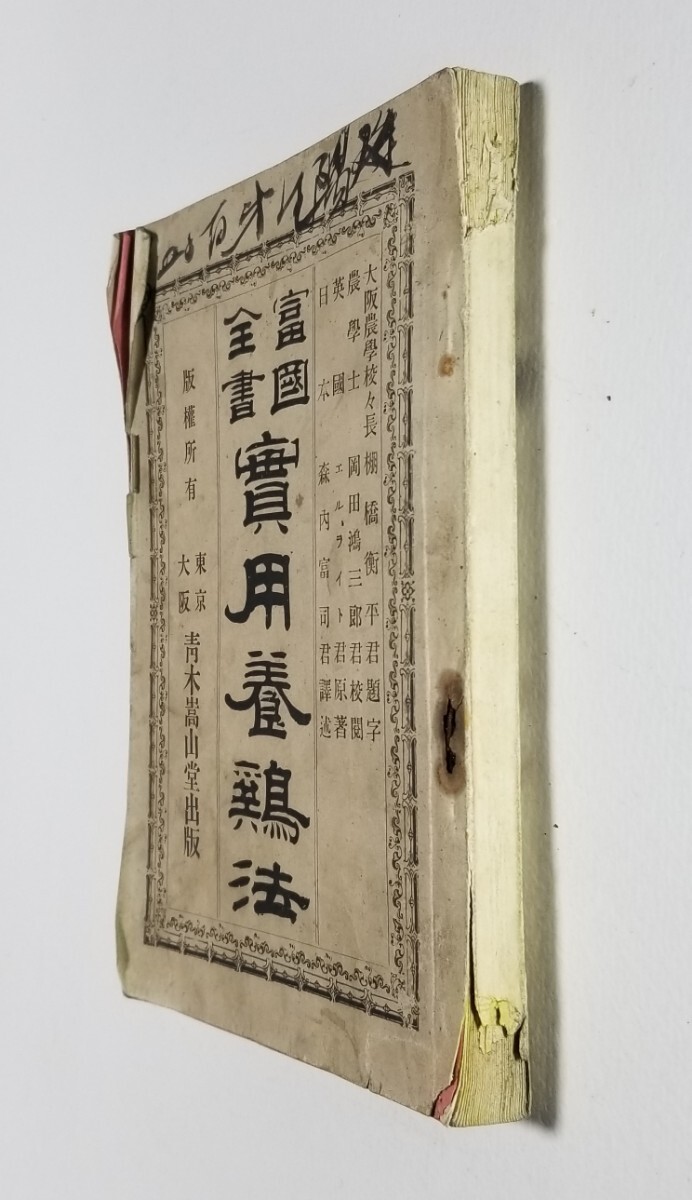 大阪農學校々長 棚橋衡平君題字
農學士 岡田鴻三郎君校閲
英國 エル、ライト君原著
日本 森内富司君譯述
富國全書
實用養鷄法
版權所有
東京
大阪
青木嵩山堂出版